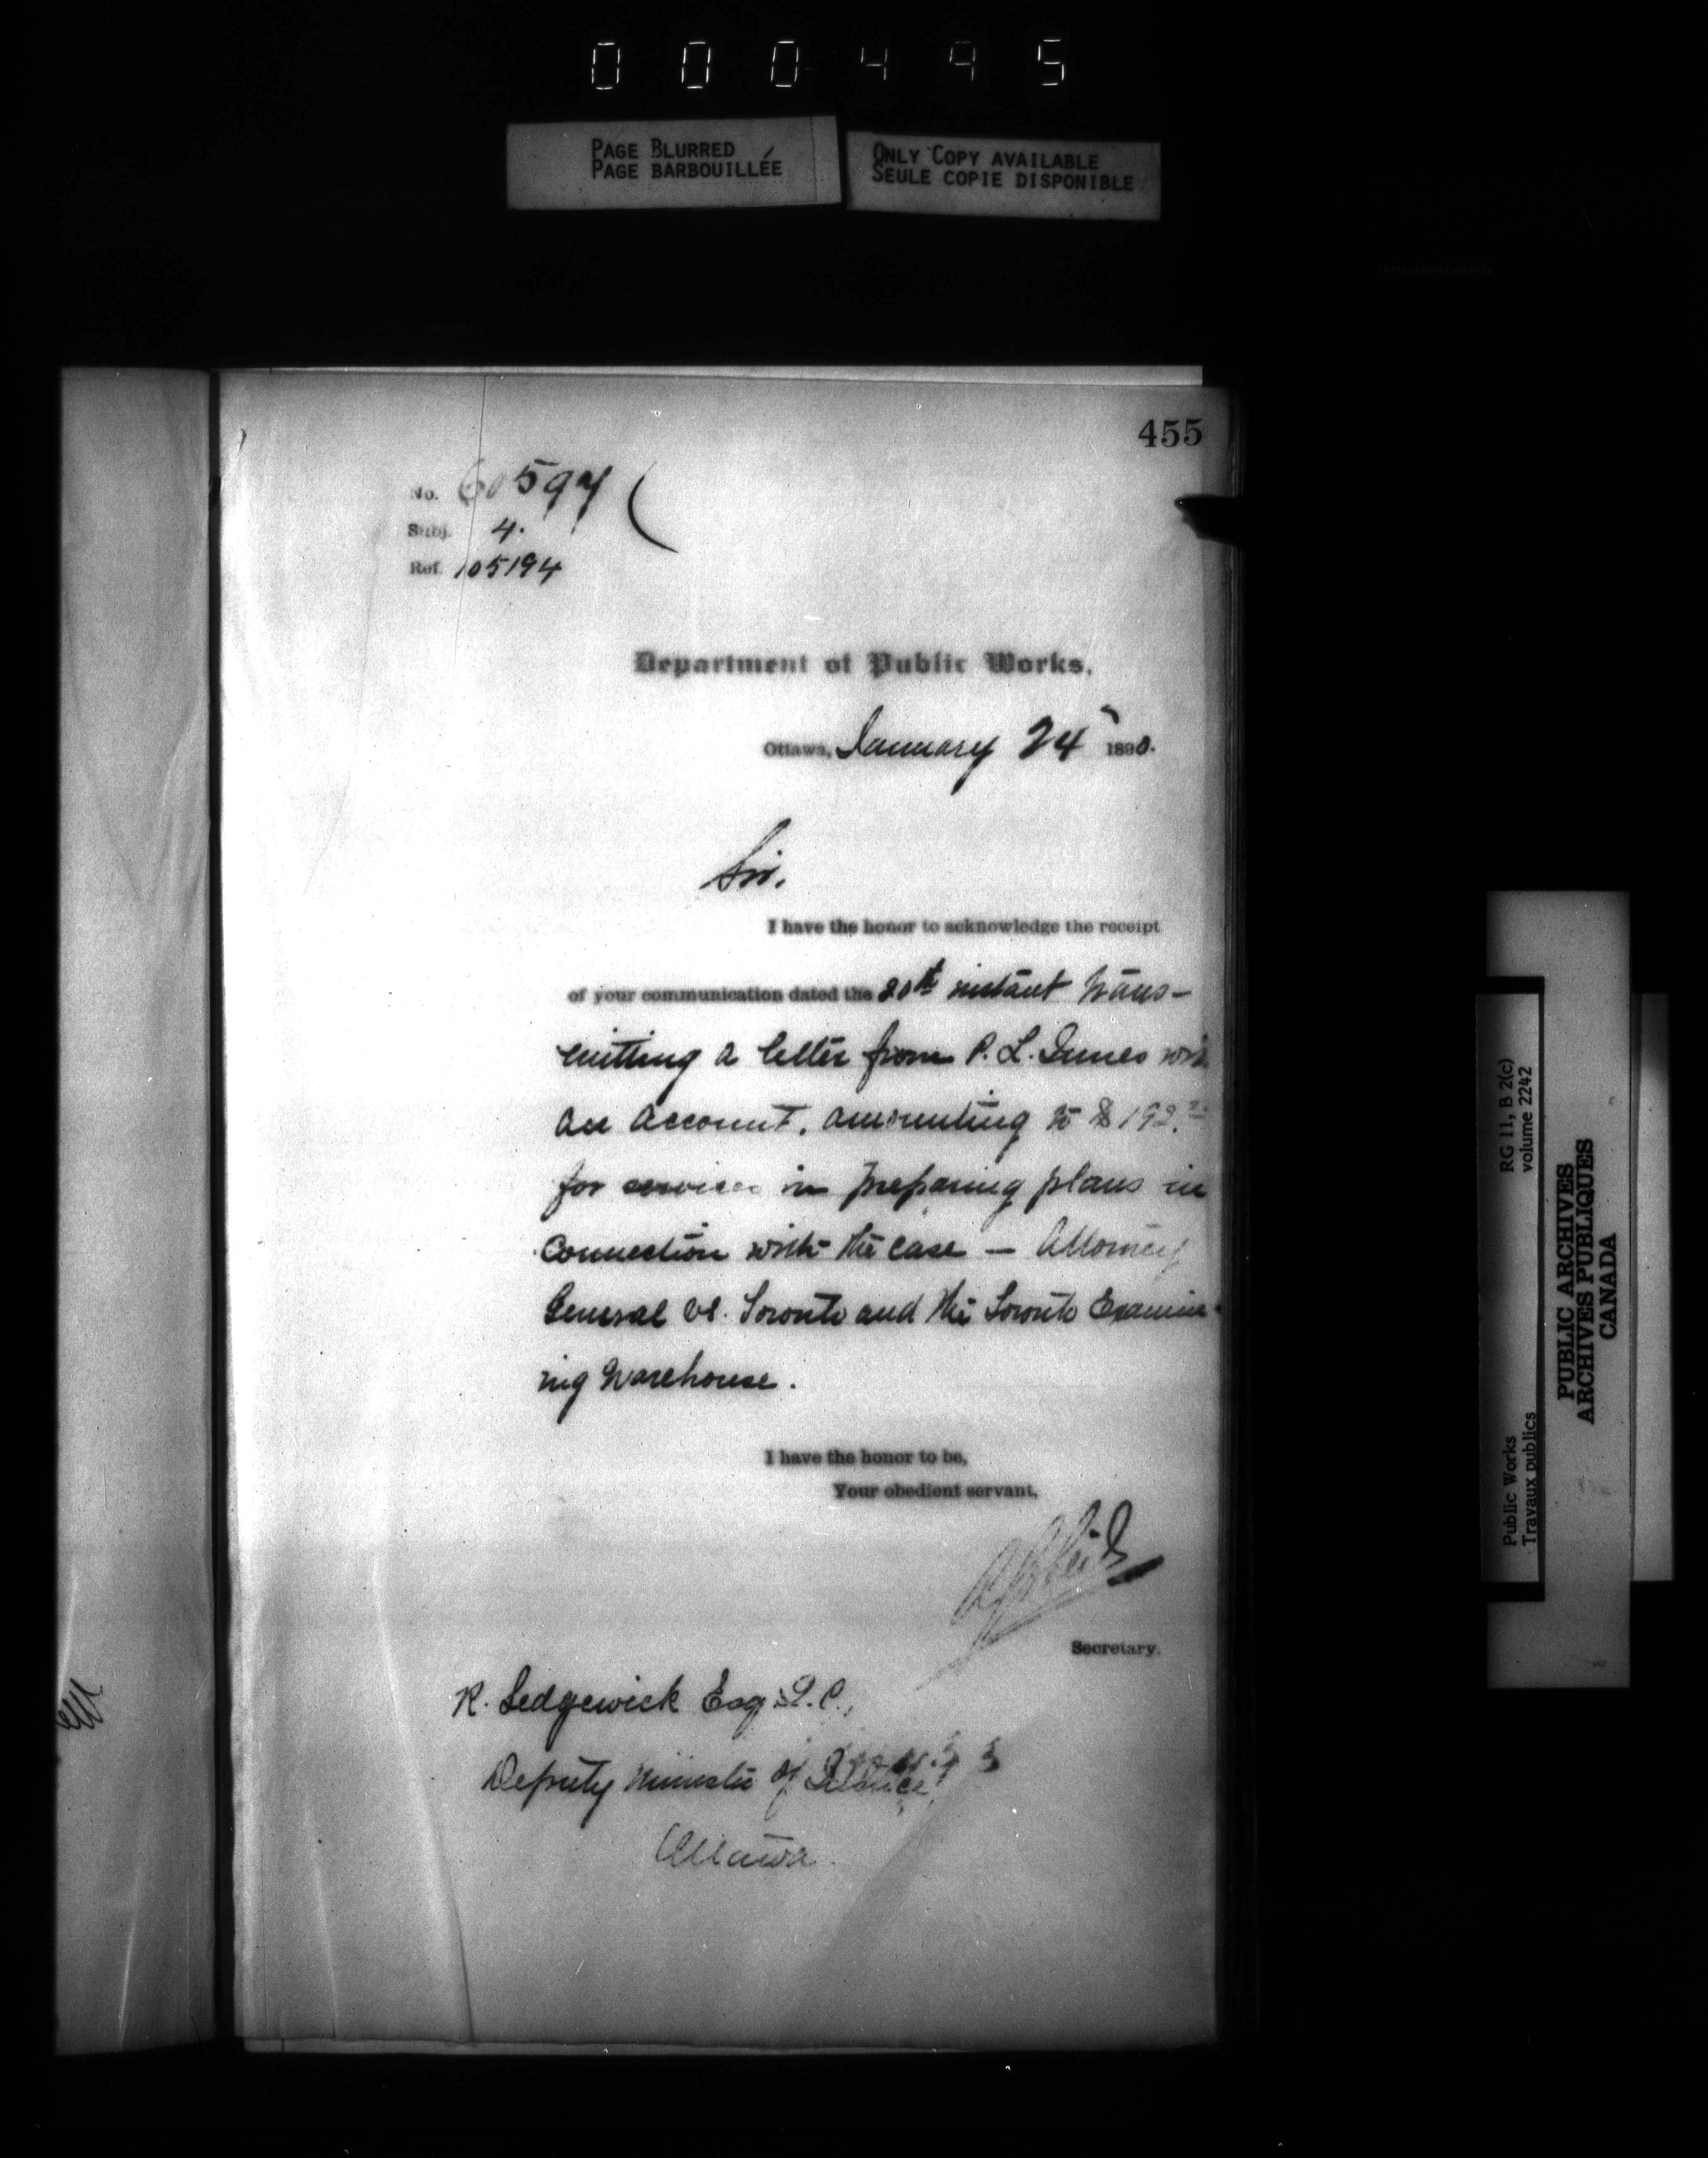 000495
PAGE BLURRED
PAGE BARBOUILLÉE
ONLY COPY AVAILABLE
SEULE COPIE DISPONIBLE
455
No. 60594
Subj. 4.
Ref. 105194
Department of Public Works.
Ottawa, January 24 1890.
Sir,
I have the honor to acknowledge the receipt
of your communication dated the 20th instant trans-
mitting a letter from P. L. Innes with
an account, amounting to $192.
for services in preparing plans in
connection with the case — Attorney
General vs. Toronto and the Toronto Examin-
ing Warehouse.
I have the honor to be,
Your obedient servant,
Secretary.
R. Sedgewick Esq. Q.C.,
Deputy Minister of Justice,
Ottawa
RG 11, B 2(c)
volume 2242
Public Works
Travaux publics
PUBLIC ARCHIVES
ARCHIVES PUBLIQUES
CANADA